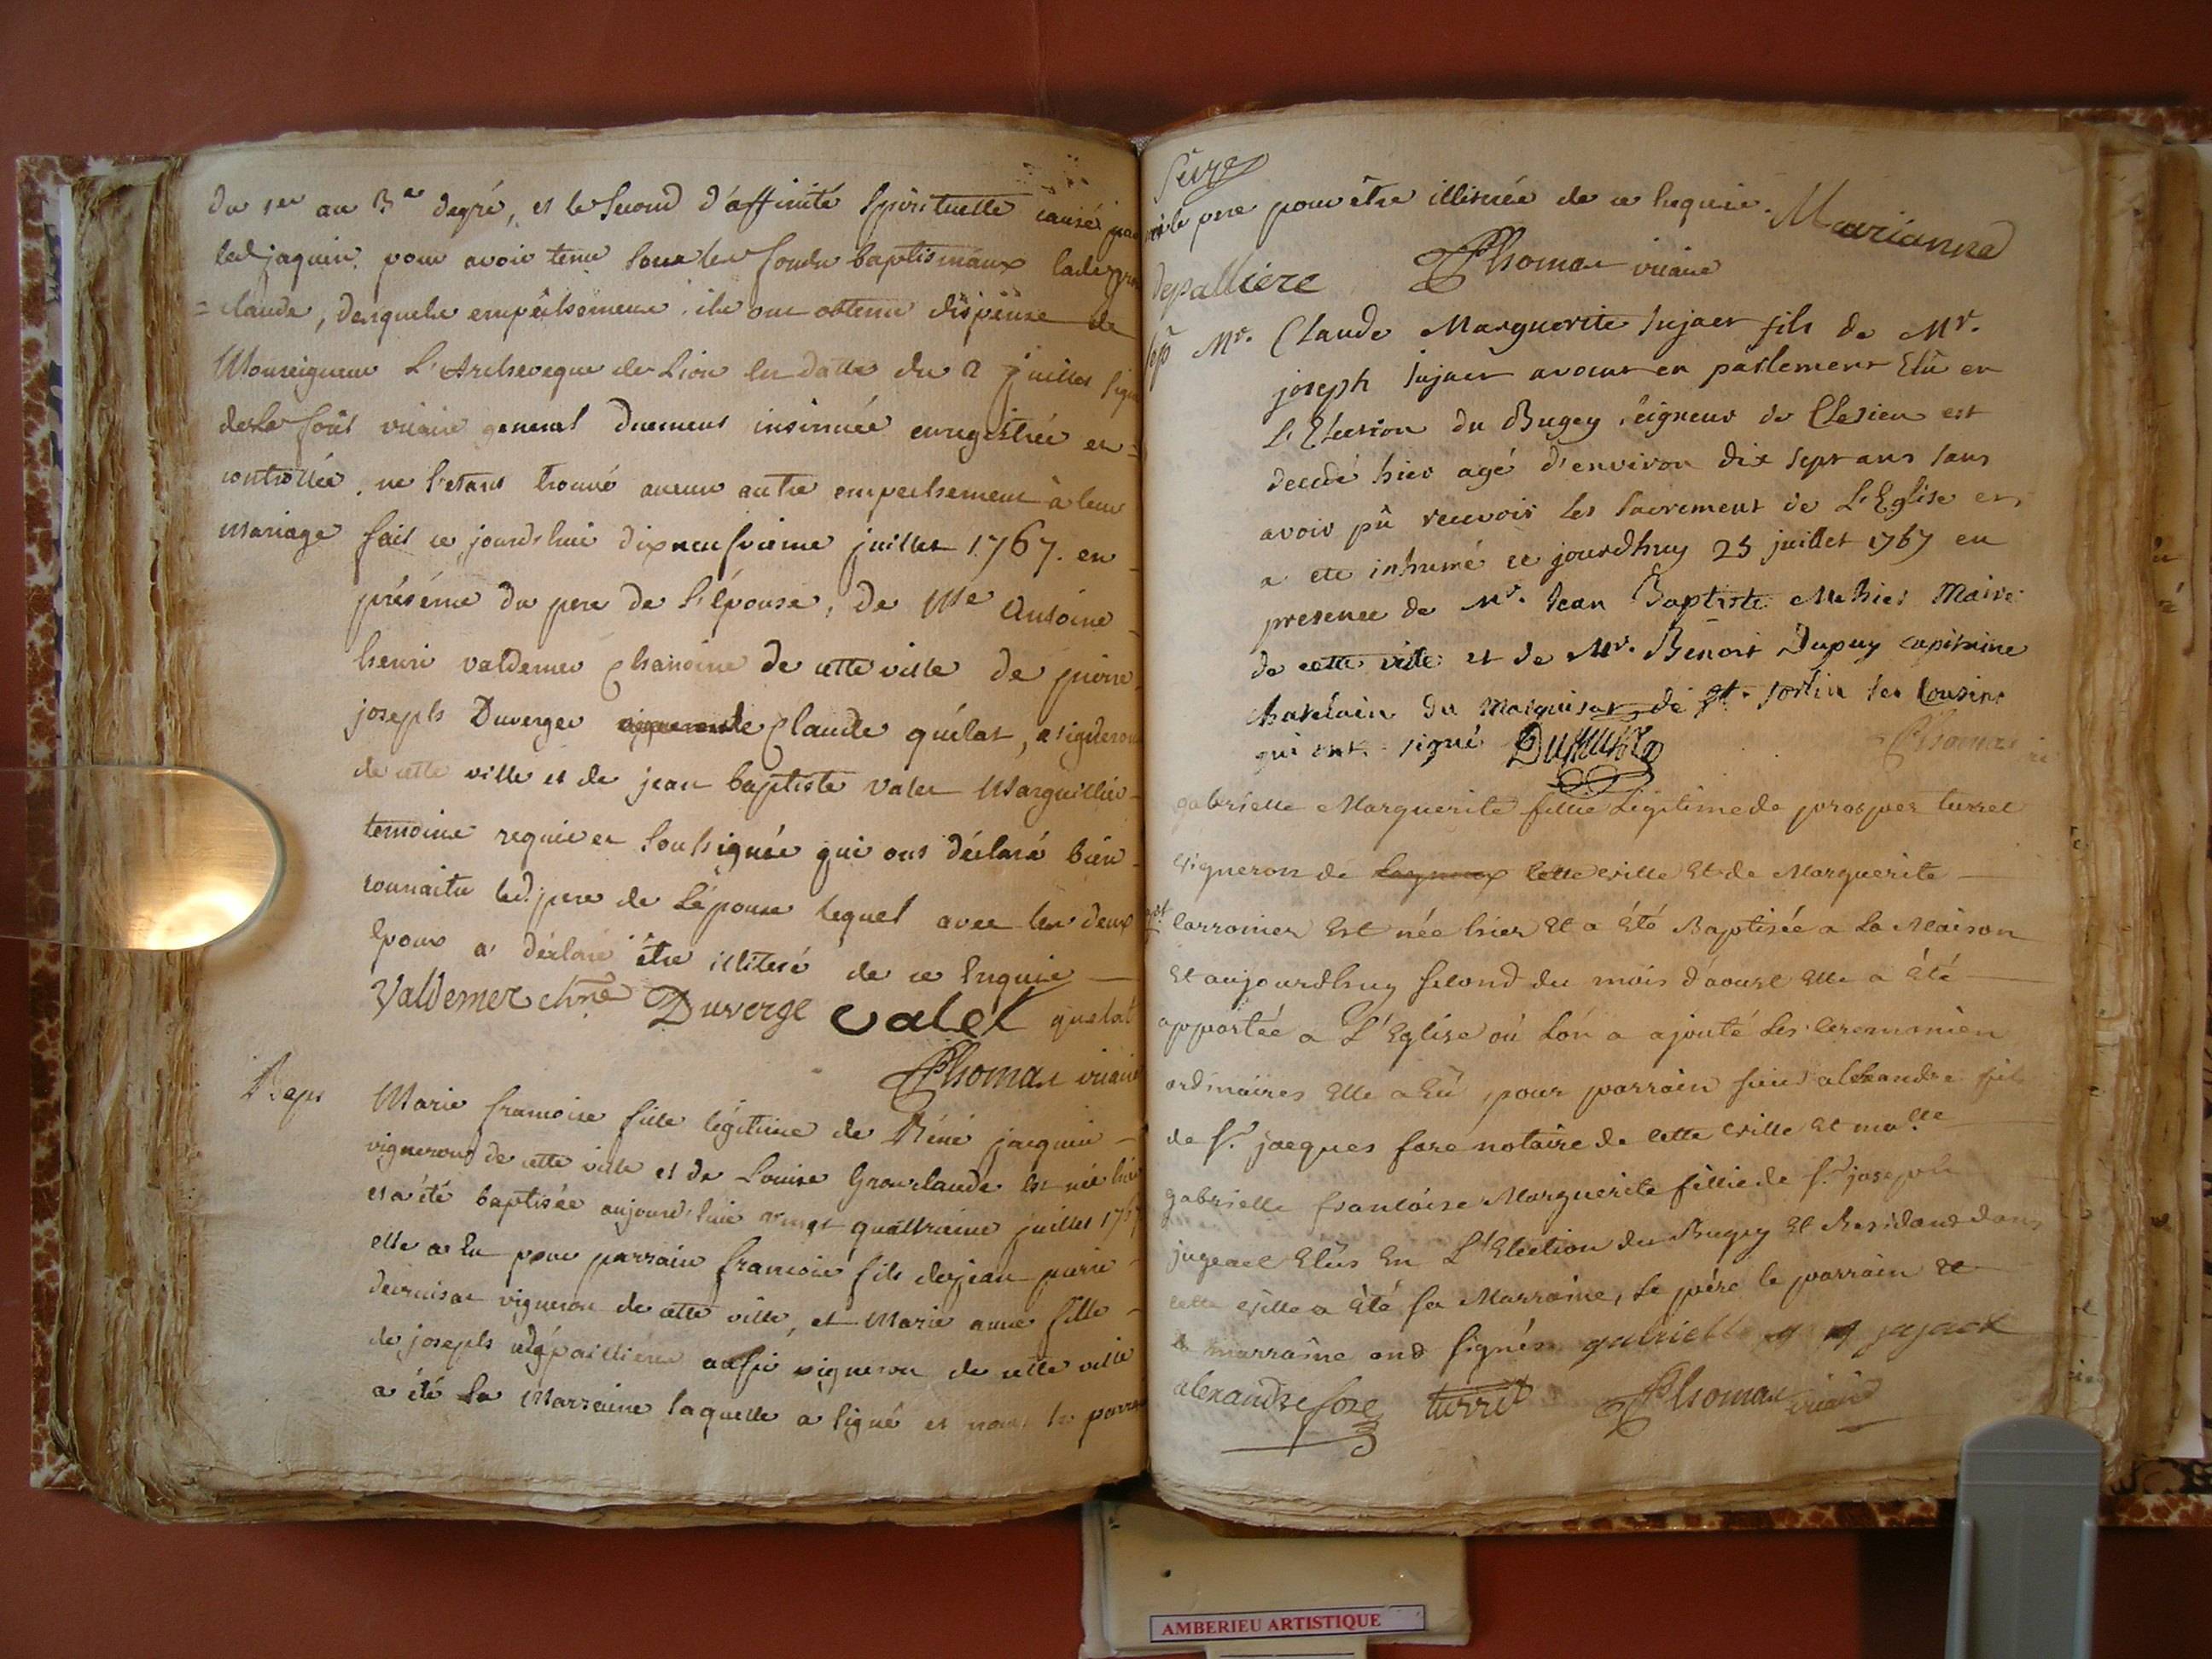 du 1er au 3e degré, et le Second d'affinité Spirituelle causé par
led jaquin pour avoir tenu sous les fonds baptismaux lade
= claude, desquels empêchemens ils ont obtenu dispense de
Monseigneur L'Archeveque de Lion en datte du 2 juillet
vicaire general duement insinuée enregistrée et
controllée. ne s'etant trouvé aucun autre empechement à leur
mariage fait ce jourdhui dixneufvieme juillet 1767. en
présence du pere de l'épouse, de Mre Antoine
henri valdemer Chanoine de cette ville de
joseph Duverger Claude quélat, vigneron
de cette ville et de jean baptiste valet Marguillier
temoins requis et soussignés qui ont déclaré bien
connaitre led. pere de L'épouse lequel avec les deux
époux a déclaré être illiteré de ce Enquis
Valdemer chne Duverge valet quelat
Thomas vicaire
Bapt
Marie francoise fille légitime de Réné jacquin
vigneron de cette ville et de Louise Grosclaude est née hier
et a été baptisée aujourd'hui vingt quattrieme juillet 1767
elle a Eu pour parrain francois fils de jean
vigneron de cette ville, et Marie anne fille
de joseph depaillieres aussi vigneron de cette ville
a été la Marraine laquelle a signé et non le parrain
ni le pere pour être illiterés de ce Enquis. Marianne
depalliere Thomas vicaire
Sep
Mr. Claude Marguerite Jujaet fils de Mr.
joseph Jujaet avocat en parlement Elû en
L'Election du Bugey seigneur de est
decedé hier agé d'environ dix sept ans sans
avoir pû recevoir les sacrement de L'Eglise et,
a ete inhumé ce jourdhuy 25 juillet 1767 en
presence de Mr. Jean Baptiste Maire
de cette ville et de Mr. Benoit Dupuy capitaine
chatelain du Marquisat de St. Sorlin ses Cousins
qui ont signé Thomas
gabrielle Marguerite fillie Légitime de prosper turrel
vigneron de Lagnieux cette ville Et de Marguerite
Carronier Est née hier Et a été Baptisée a La Maison
Et aujourdhuy second du mois d'aoust Elle a été
apportée a L'Eglise où Lon a ajouté Les ceremonien
ordinaires Elle a Eû pour parrain sieur alexandre fils
de Sr. jacques fore notaire de cette ville Et ma.lle
gabrielle francoise Marguerite fillie de Sr joseph
jugeact Elûs En L'Election du Bugey Et Residand dans
cette ville a été sa Marraine, Le père le parrain et
la marraine ond signés gabrielle jujact
alexandre fore turrel Thomas vicaire
AMBERIEU ARTISTIQUE